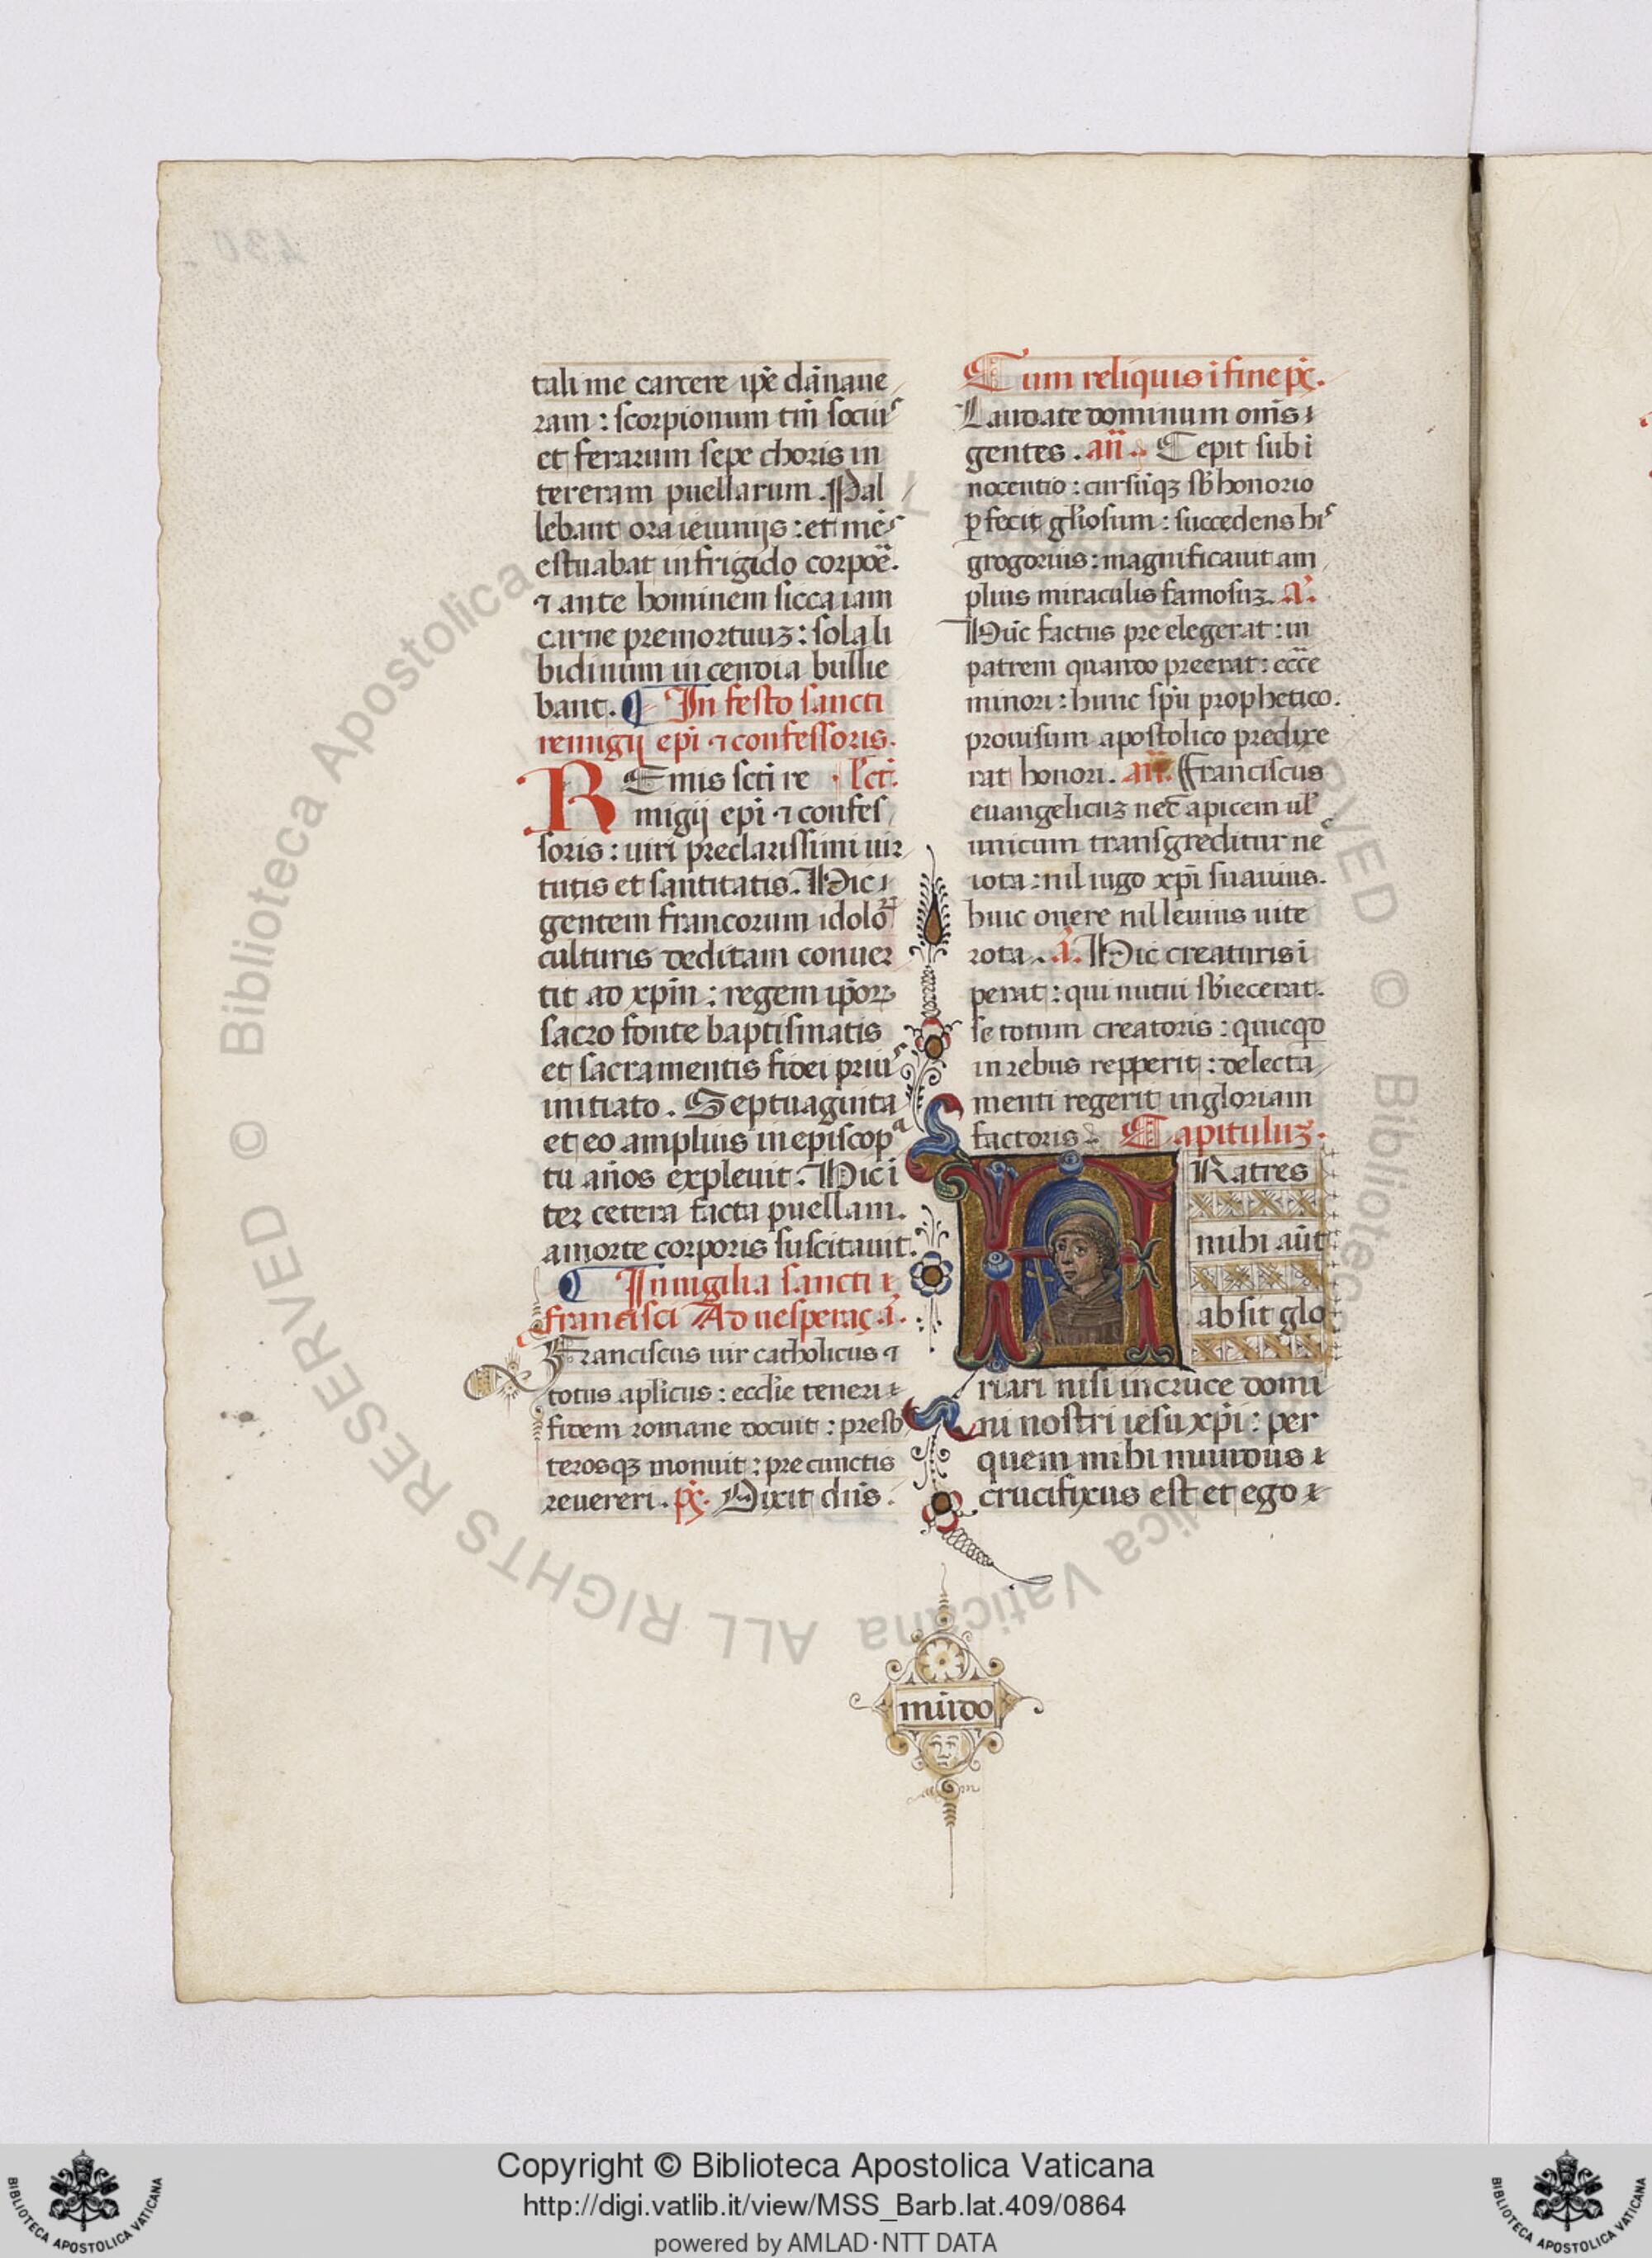 tali me carcere ip̄e dānaue
ram : scorpionum tm̄ sociuˢ
et ferarum sepe choris in
tereram puellarum . Pal
lebant ora ieiunijs : et mēˢ
estuabat in frigido corpoē .
⁊ ante hominem sicca iam
carne premortuuꝫ : sola li
bidinum in cendia bullie
bant . ¶ In festo sancti
remigij ep̄i ⁊ confessoris .
REmis scti re . lct̄.
migij ep̄i ⁊ confes
soris : uiri preclarissimi uir
tutis et santitatis . Hic
gentem francorum idoloꝝ
culturis deditam conuer
tit ad xp̄m : regem ip̄oꝝ
sacro fonte baptismatis
et sacramentis fidei priuˢ
initiato . Septuaginta
et eo amplius in episcopᵃ
tu an̄os expleuit . Hic i
ter cetera facta puellam .
amorte corporis suscitauit .
¶ In uigilia sancti
francisci Ad uesperas . a̅.
Franciscus uir catholicus ⁊
totus ap̄licus : ecclīe teneri
fidem romane docuit : presb
terosqꝫ monuit : pre cunctis
reuereri . ps̄. Dixit dn̄s .
Cum reliquis i fine ps̄.
Laudate dominum om̄s
gentes . an̄. Cepit sub i
nocentio : cursūqꝫ sb̄ honorio
ꝑfecit gl̄iosum : succedens hiˢ
grogorius : magnificauit am
plius miraculis famosuꝫ . a̅.
Hūc factus pre elegerat : in
patrem quando preerat : ecc̄e
minori : hunc sp̄u prophetico .
prouisum apostolico predixe
rat honori . an̄. Franciscus
euangelicuꝫ nec̄ apicem ul̄
unicum transgreditur neᶜ
iota : nil iugo xp̄i suauius .
huic onere nil leuius uite
rota . a̅. Hic creaturis i
perat : qui nutui sb̄iecerat .
se totum creatoris : quicqd
in rebus repperit : delecta
menti regerit in gloriam
factoris . Capituluꝫ .
FRatres
mihi aūt
absit glo
riari nisi in cruce domi
ni nostri iesu xp̄i : per
quem mihi mundus
crucifixus est et ego
mūdo
© Biblioteca Apostolica Vaticana ALL RIGHTS RESERVED
Copyright © Biblioteca Apostolica Vaticana
http://digi.vatlib.it/view/MSS_Barb.lat.409/0864
powered by AMLAD·NTT DATA
BIBLIOTECA APOSTOLICA VATICANA
BIBLIOTECA APOSTOLICA VATICANA